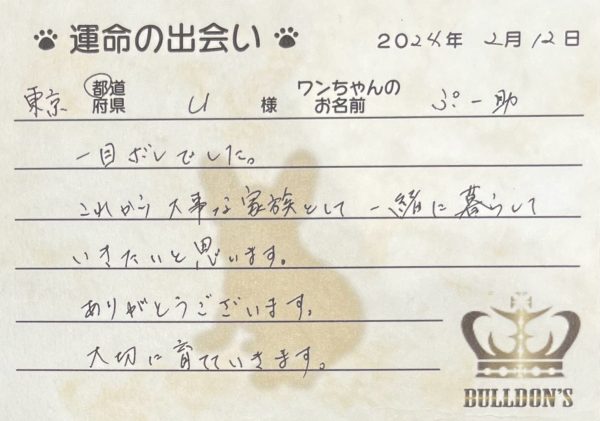 運命の出会い 2024年 2月12日
東京 都道府県 U 様 ワンちゃんのお名前 ぷー助
一目ボレでした。
これから大事な家族として一緒に暮らして
いきたいと思います。
ありがとうございます。
大切に育てていきます。
BULLDON'S